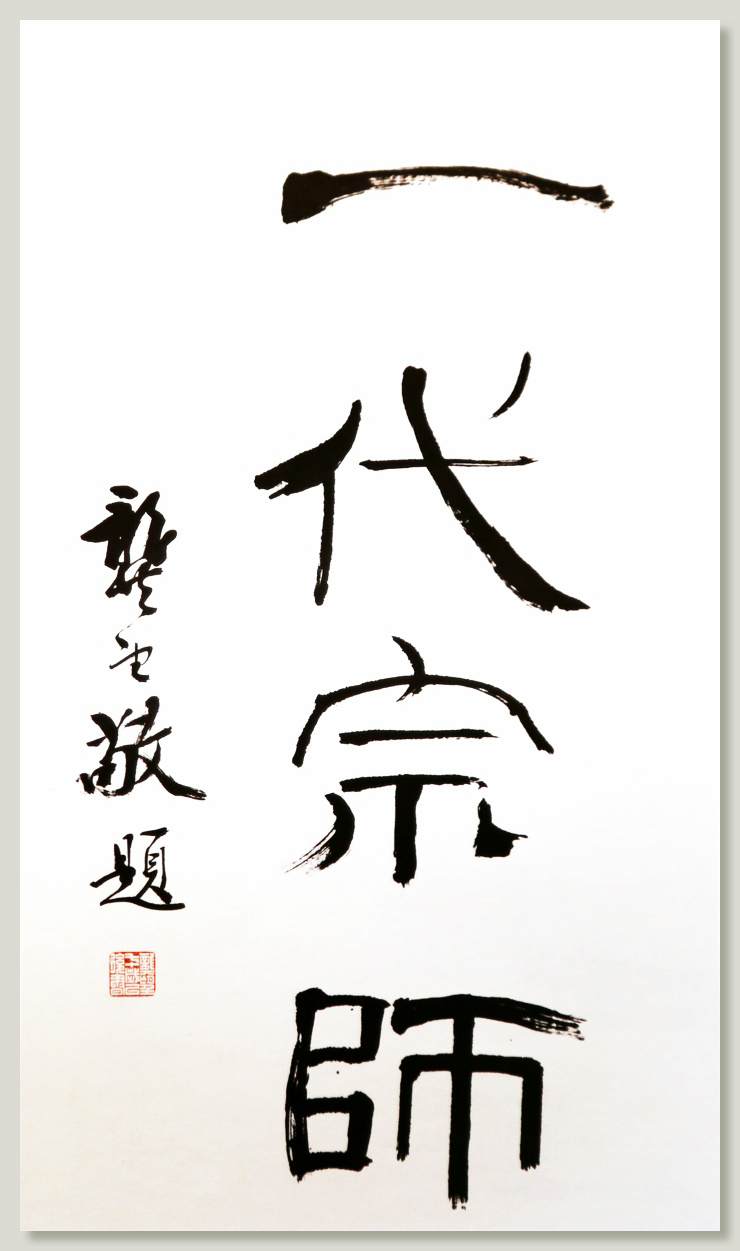 一代宗師
龔望敬題